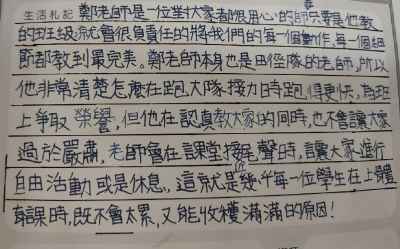 生活札記 鄭老師是一位對大家都很用心的師,只要是他教
的班級就會很負責任的將我們的每一個動作,每一個細
節都教到最完美。鄭老師本身也是田徑隊的老師,所以
他非常清楚怎麼在跑大隊接力時跑得更快,為班
上爭取榮譽,但他在認真教大家的同時,也不會讓大家
過於嚴肅,老師會在課堂接近尾聲時,讓大家進行
自由活動或是休息,這就是幾乎每一位學生在上體
育課時,既不會太累,又能收穫滿滿的原因!